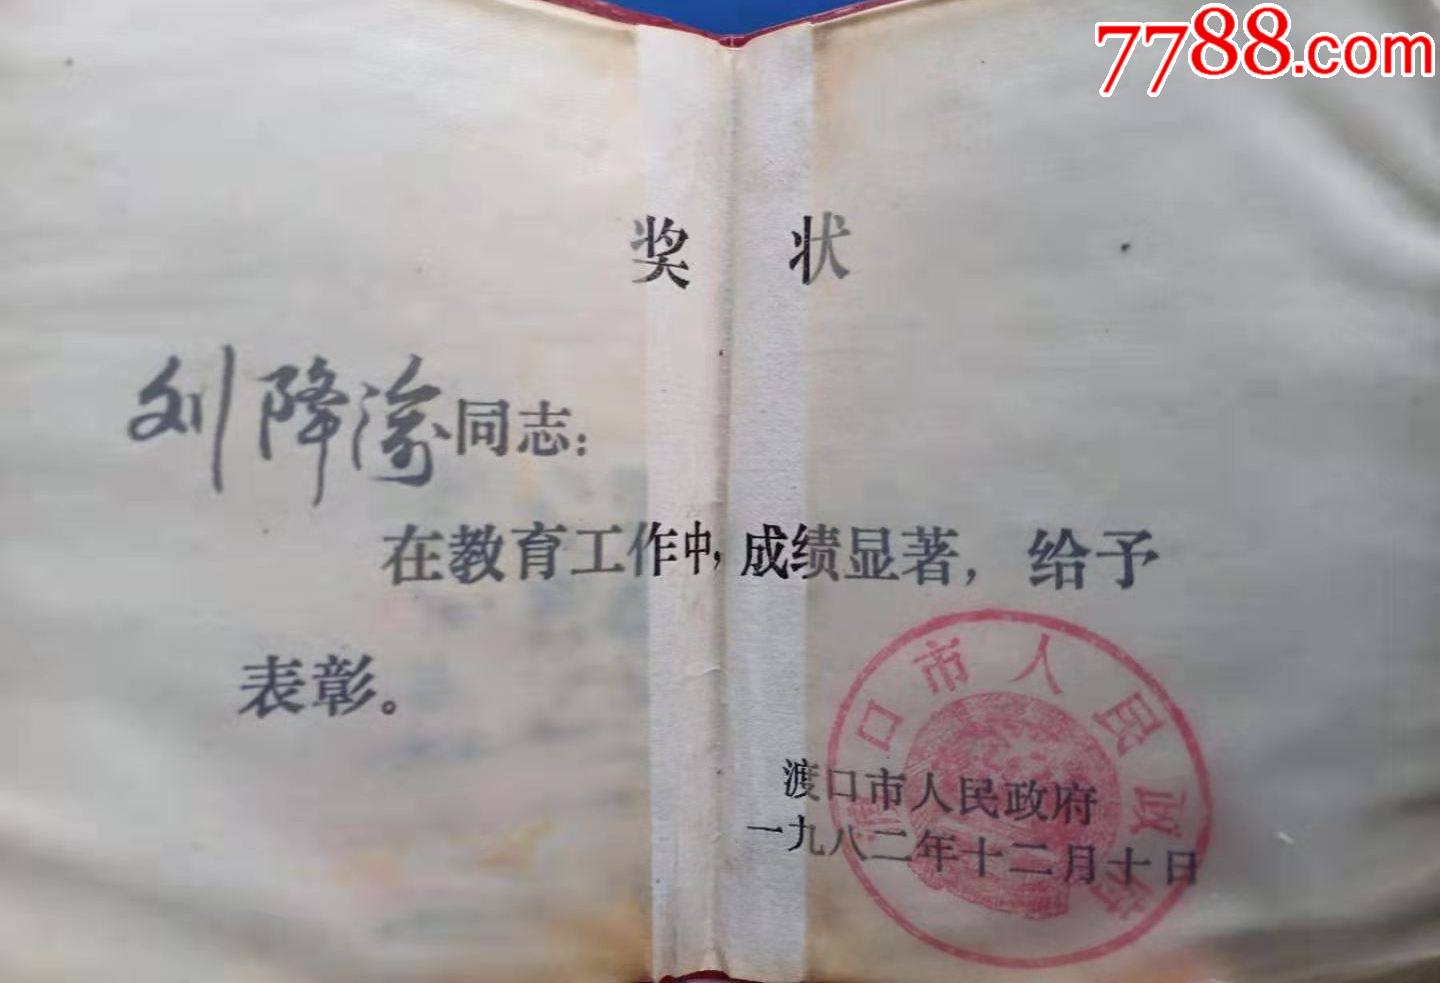 7788.com
奖 状
刘降渝同志：
在教育工作中，成绩显著，给予
表彰。
渡口市人民政府
一九八二年十二月十日
渡口市人民政府